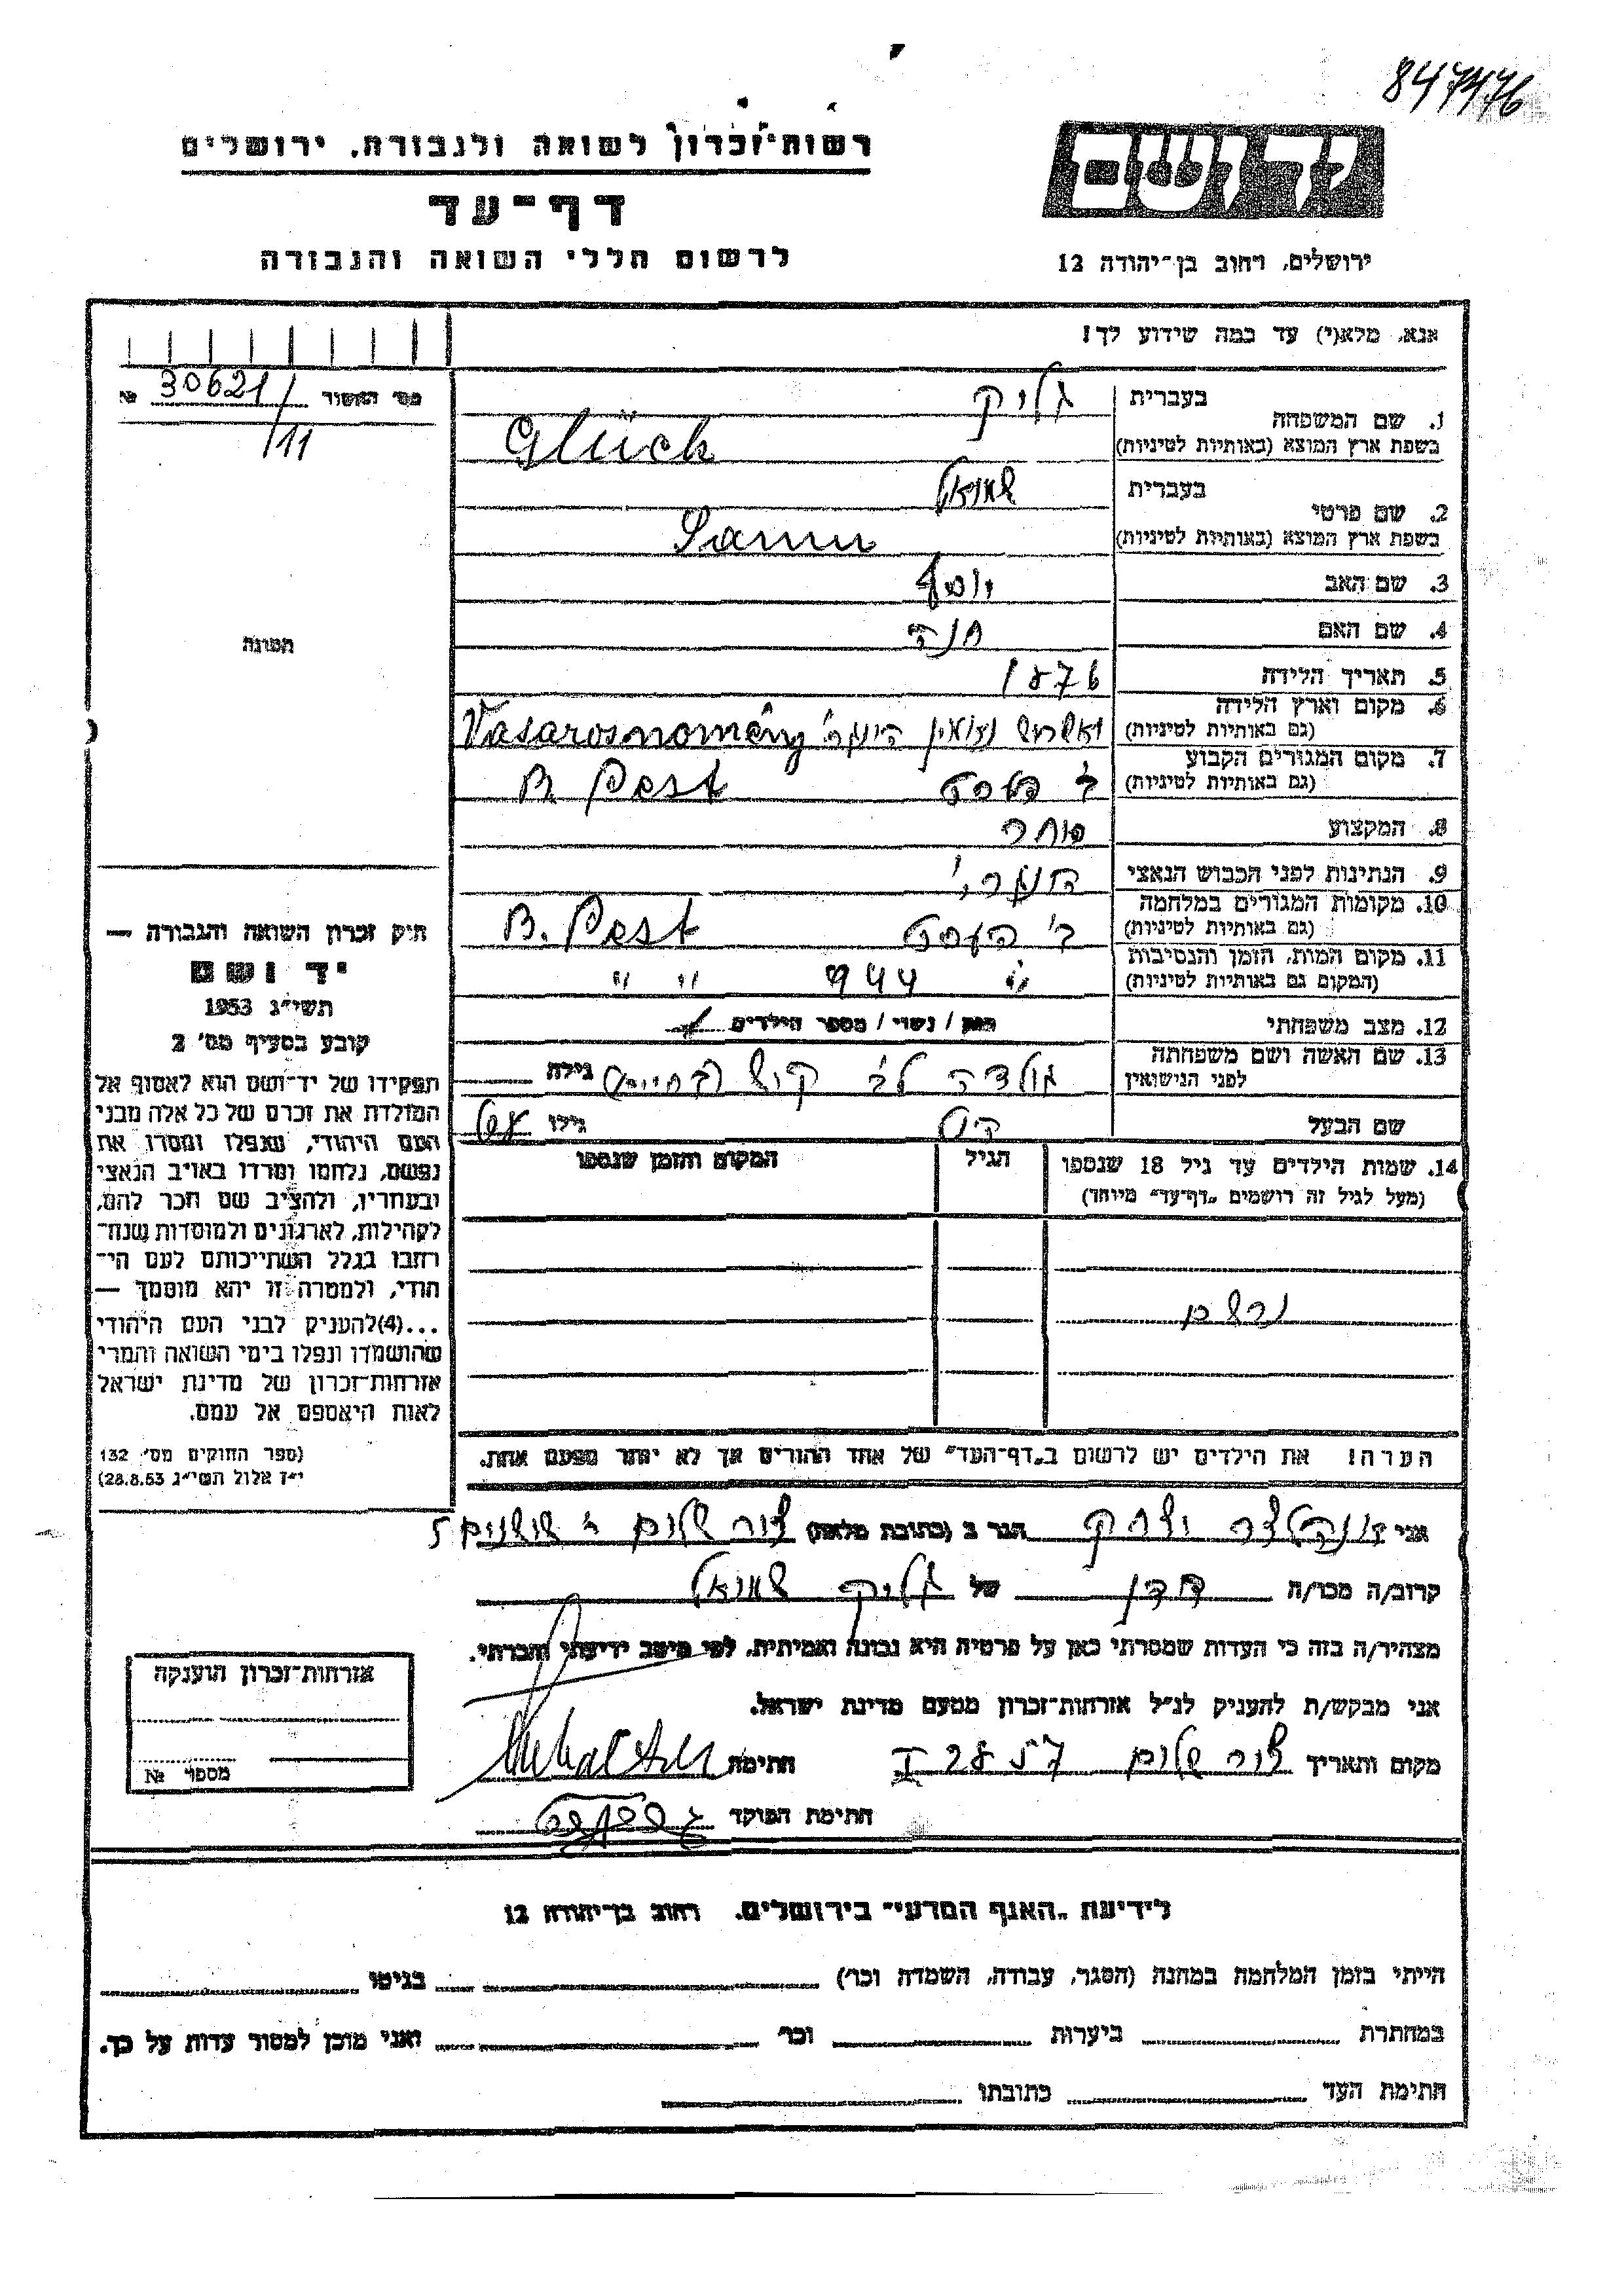 847476
רשות־זכרון לשואה ולגבורה, ירושלים
דף־עד
לרשום חללי השואה והגבורה
יד ושם
ירושלים, רחוב בן־יהודה 12
אנא, מלא(י) עד כמה שידוע לך!
מס׳ האשור 30621/11 №
1. שם המשפחה
בעברית גליק
בשפת ארץ המוצא (באותיות לטיניות) Glück
2. שם פרטי
בעברית שמואל
בשפת ארץ המוצא (באותיות לטיניות) Samu
3. שם האב יוסף
4. שם האם חנה
5. תאריך הלידה 1876
6. מקום וארץ הלידה
(גם באותיות לטיניות) Vasarosnomény
7. מקום המגורים הקבוע
(גם באותיות לטיניות) ב פשט B. Pest
8. המקצוע סוחר
9. הנתינות לפני הכבוש הנאצי הונגרי
10. מקומות המגורים במלחמה
(גם באותיות לטיניות) ב׳ פעסט B. Pest
11. מקום המות, הזמן והנסיבות
(המקום גם באותיות לטיניות) " 944 " "
12. מצב משפחתי רווק / נשוי / מספר הילדים
13. שם האשה ושם משפחתה
לפני הנישואין גולדה לב׳ קיש (בחיים) גילה
שם הבעל גילו
14. שמות הילדים עד גיל 18 שנספו
(מעל לגיל זה רושמים „דף־עד״ מיוחד)
הגיל
המקום והזמן שנספו
הערה! את הילדים יש לרשום ב„דף־העד״ של אחד ההורים אך לא יותר מפעם אחת.
התמונה
חוק זכרון השואה והגבורה —
יד ושם
תשי״ג 1953
קובע בסעיף מס׳ 2
תפקידו של יד־ושם הוא לאסוף אל
המולדת את זכרם של כל אלה מבני
העם היהודי, שנפלו ומסרו את
נפשם, נלחמו ומרדו באויב הנאצי
ובעוזריו, ולהציב שם וזכר להם,
לקהילות, לארגונים ולמוסדות שנח־
רבו בגלל השתייכותם לעם הי־
הודי, ולמטרה זו יהא מוסמך —
...(4) להעניק לבני העם היהודי
שהושמדו ונפלו בימי השואה והמרי
אזרחות־זכרון של מדינת ישראל
לאות היאספם אל עמם.
(ספר החוקים מס׳ 132
י״ז אלול תשי״ג 28.8.53)
אני הגר ב (כתובת מלאה) צור שלום
קרוב/ה מכר/ה חתן של גליק שמואל
מצהיר/ה בזה כי העדות שמסרתי כאן על פרטיה היא נכונה ואמיתית, לפי מיטב ידיעתי והכרתי.
אני מבקש/ת להעניק לנ״ל אזרחות־זכרון מטעם מדינת ישראל.
מקום ותאריך צור שלום 28 I 57 חתימה
חתימת הפוקד
אזרחות־זכרון הוענקה
מספר №
לידיעת „האגף המדעי״ בירושלים, רחוב בן־יהודה 12
הייתי בזמן המלחמה במחנה (הסגר, עבודה, השמדה וכו׳) בגיטו
במחתרת ביערות וכו׳ ואני מוכן למסור עדות על כך.
חתימת העד כתובתו